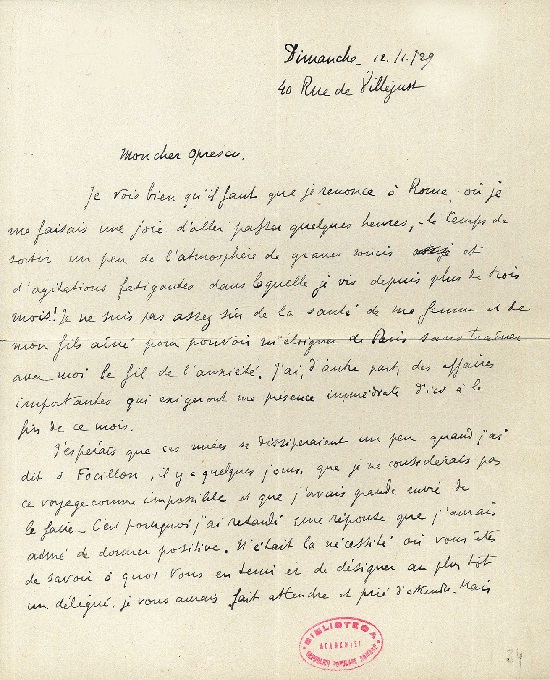 Dimanche 12/1/29
40 Rue de Villejust
Mon cher Oprescu,
Je vois bien qu'il faut que je renonce à Rome où je
me faisais une joie d'aller passer quelques heures, le temps de
sortir un peu de l'atmosphère de graves soucis et
d'agitations fatigantes dans laquelle je vis depuis plus de trois
mois! Je ne suis pas assez sûr de la santé de ma femme et de
mon fils aîné pour pouvoir m'éloigner de Paris sans traîner
avec moi le fil de l'anxiété. J'ai, d'autre part, des affaires
importantes qui exigeront ma présence immédiate d'ici à la
fin de ce mois.
J'espérais que ces nuées se dissiperaient un peu quand j'ai
dit à Focillon, il y a quelques jours, que je ne considérais pas
ce voyage comme impossible et que j'avais grande envie de
le faire - C'est pourquoi j'ai retardé une réponse que j'aurais
aimé de donner positive. N'était la nécessité où vous êtes
de savoir à quoi vous en tenir et de désigner au plus tôt
un délégué, je vous aurais fait attendre et prié d'attendre. Mais
BIBLIOTECA
ACADEMIEI
34